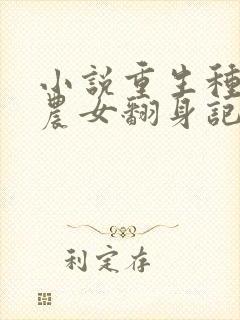 小説重生種
農女翻身記
利定存